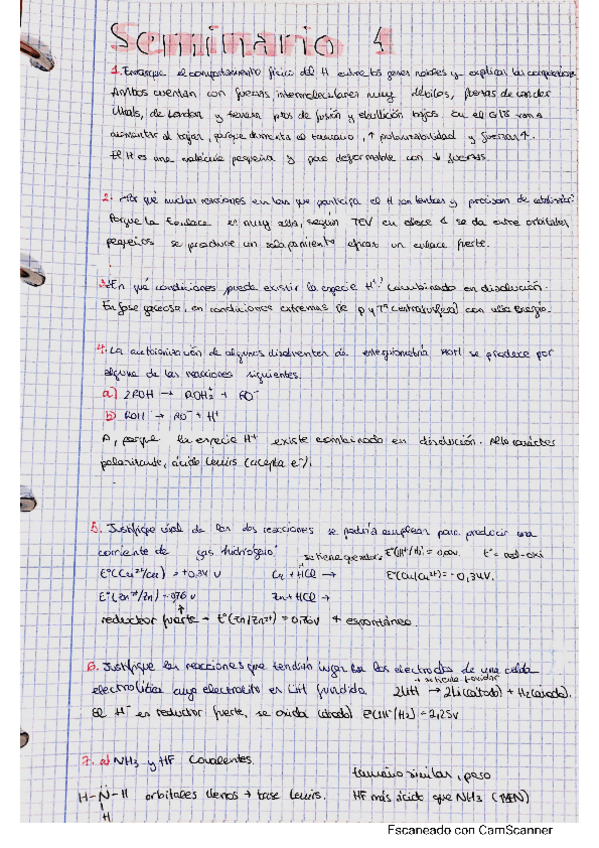 Seminario 1
1. Enfoque el comportamiento físico del H entre los gases nobles y explicar las
Ambos cuentan con fuerzas intermoleculares muy débiles, fuerzas de vander
Whals, de London y tienen ptos de fusión y ebullición bajos. En el G18 van a
aumentar al bajar, porque aumenta el tamaño, ↑ polarizabilidad y fuerzas ↑.
El H es una molécula pequeña y poco deformable con ↓ fuerzas.
2. ¿Por qué muchas reacciones en las que participa el H son lentas y precisan de catalizador?
Porque la Eenlace es muy alta, según TEV en enlace se da entre orbitales
pequeños se produce un solapamiento eficaz un enlace fuerte.
3. En qué condiciones puede existir la especie H⁺ combinado en disolución.
En fase gaseosa, en condiciones extremas de p y Tª con alta energía.
4. La autoionización de algunos disolventes de estequiometría se produce por
alguna de las reacciones siguientes.
a) 2ROH → ROH₂⁺ + RO⁻
b) ROH → RO⁻ + H⁺
A, porque la especie H⁺ existe combinado en disolución. Alto carácter
polarizante, ácido Lewis (acepta e⁻).
5. Justifique cual de las dos reacciones se podría emplear para producir una
corriente de gas hidrógeno: E°(H⁺/H₂) = 0,00v. E° = red-oxi
E°(Cu²⁺/Cu) = +0,34 v Cu + HCl → E°(Cu/Cu²⁺) = -0,34v.
E°(Zn²⁺/Zn) -0,76 v Zn + HCl →
reductor fuerte → E°(Zn/Zn²⁺) = 0,76v + espontáneo.
6. Justifique las reacciones que tendrán lugar en los electrodos de una celda
electrolítica cuyo electrolito es LiH fundido. 2LiH → 2Li(cátodo) + H₂(ánodo).
El H⁻ es reductor fuerte, se oxida (ánodo) E°(H⁻/H₂) = 2,25v
7. a) NH₃ y HF Covalentes.
tamaño similar, pero
H-N-H orbitales llenos → base Lewis. HF más ácido que NH₃
H
Escaneado con CamScanner